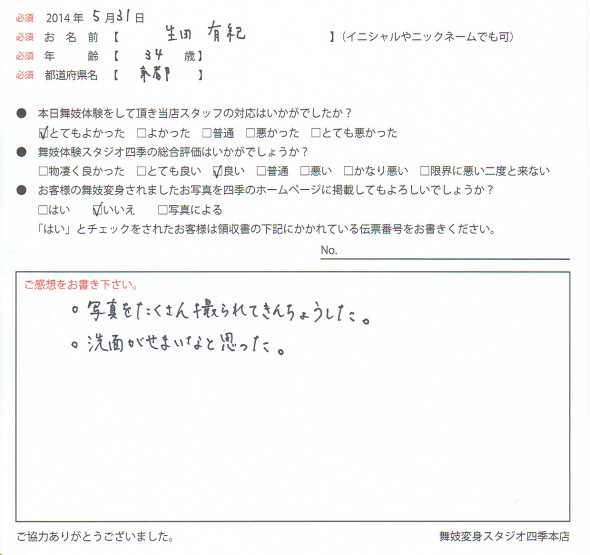 必須 2014年 5月31日
必須 お名前【 生田 有紀 】(イニシャルやニックネームでも可)
必須 年 齢【 34 歳】
必須 都道府県名【 京都 】
● 本日舞妓体験をして頂き当店スタッフの対応はいかがでしたか?
☑とてもよかった □よかった □普通 □悪かった □とても悪かった
● 舞妓体験スタジオ四季の総合評価はいかがでしょうか?
□物凄く良かった □とても良い ☑良い □普通 □悪い □かなり悪い □限界に悪い二度と来ない
● お客様の舞妓変身されましたお写真を四季のホームページに掲載してもよろしいでしょうか?
□はい ☑いいえ □写真による
「はい」とチェックをされたお客様は領収書の下記にかかれている伝票番号をお書きください。
No.
ご感想をお書き下さい。
○写真をたくさん撮られてきんちょうした。
○洗面がせまいなと思った。
ご協力ありがとうございました。 舞妓変身スタジオ四季本店